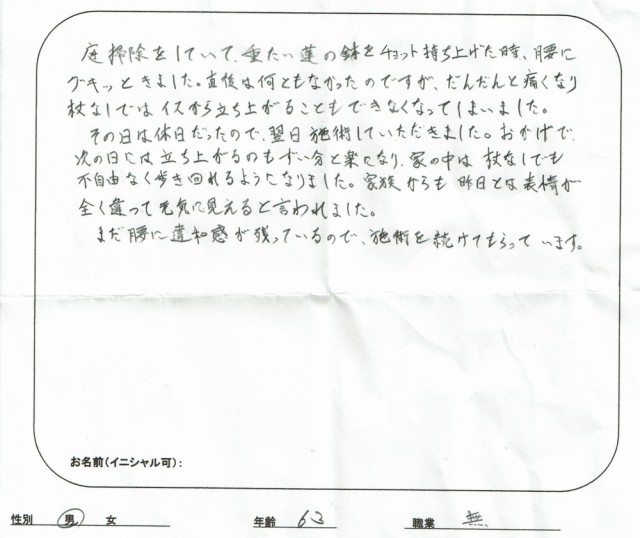 庭掃除をしていて、重たい蓮の鉢をチョット持ち上げた時、腰に
グキッときました。直後は何ともなかったのですが、だんだんと痛くなり
杖なしではイスから立ち上がることもできなくなってしまいました。
その日は休日だったので、翌日施術していただきました。おかげで、
次の日には立ち上がるのもずい分と楽になり、家の中は杖なしでも
不自由なく歩き回れるようになりました。家族からも昨日とは表情が
全く違って元気に見えると言われました。
まだ腰に違和感が残っているので、施術を続けてもらっています。
お名前(イニシャル可):
性別 男 女 年齢 63 職業 無